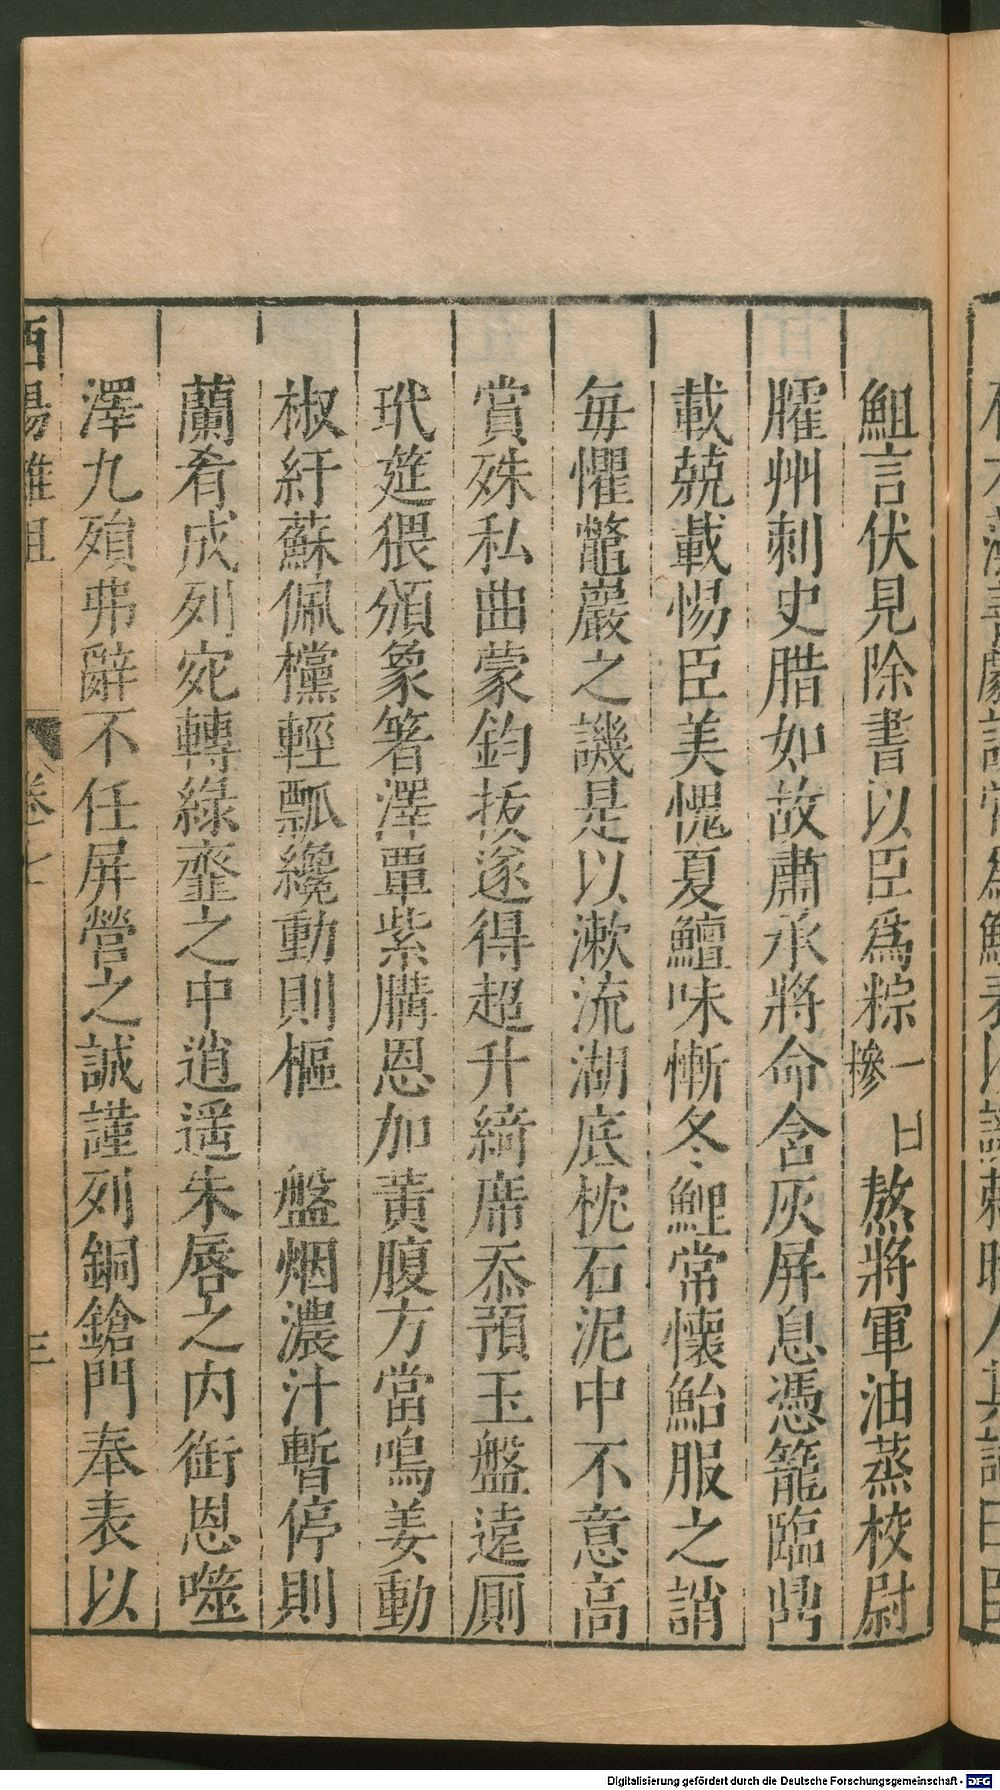 䱉言伏見除書以臣爲粽一曰糝熬將軍油蒸校尉
臛州刺史腊如故肅承將命含灰屏息憑籠臨鼎
載兢載惕臣美愧夏鱣味慚冬鯉常懷鮐服之誚
每懼鼈巖之譏是以漱流湖底枕石泥中不意高
賞殊私曲蒙鈞拔遂得超升綺席忝預玉盤遠厠
玳筵猥頒象箸澤覃紫膢恩加黃腹方當鳴姜動
椒紆蘇佩欓輕瓢纔動則樞 盤烟濃汁暫停則
蘭肴成列宛轉綠虀之中逍遥朱唇之内銜恩噬
澤九殞弗辭不任屏營之誠謹列銅鎗門奉表以
酉陽雜俎 卷七 三
Digitalisierung gefördert durch die Deutsche Forschungsgemeinschaft - DFG